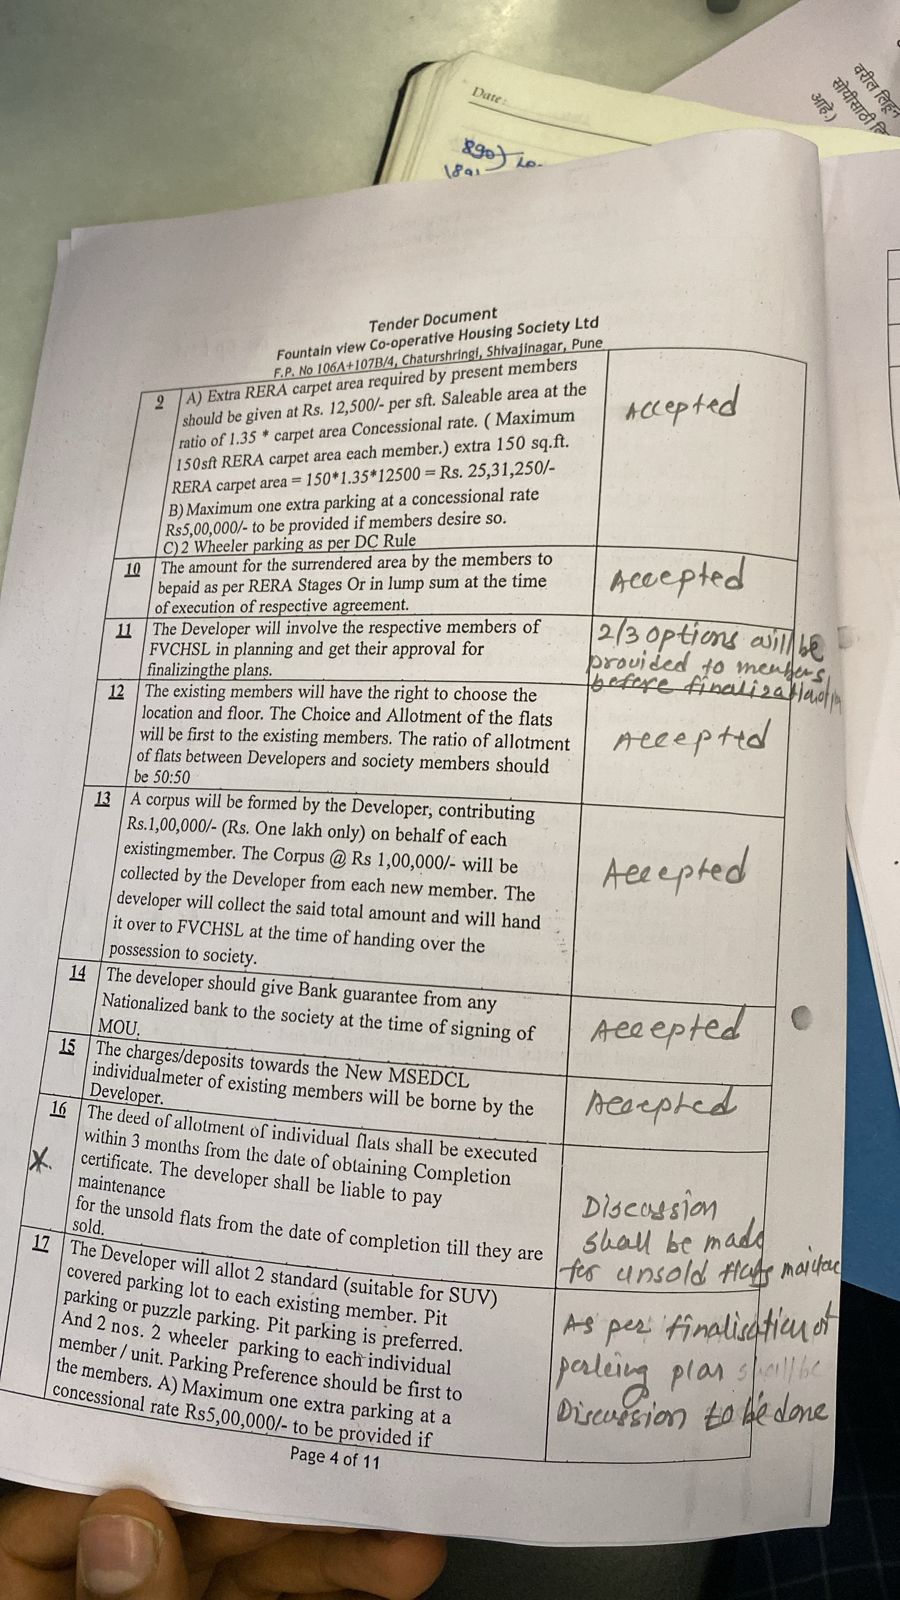 वरील लिहून
सोयीसाठी
आहे.)
Date:
890)
1891
Tender Document
Fountain view Co-operative Housing Society Ltd
F.P. No 106A+107B/4, Chaturshringi, Shivajinagar, Pune
9 A) Extra RERA carpet area required by present members
should be given at Rs. 12,500/- per sft. Saleable area at the
ratio of 1.35 * carpet area Concessional rate. ( Maximum
150sft RERA carpet area each member.) extra 150 sq.ft.
RERA carpet area = 150*1.35*12500 = Rs. 25,31,250/-
B) Maximum one extra parking at a concessional rate
Rs5,00,000/- to be provided if members desire so.
C) 2 Wheeler parking as per DC Rule
Accepted
10 The amount for the surrendered area by the members to
bepaid as per RERA Stages Or in lump sum at the time
of execution of respective agreement.
Accepted
11 The Developer will involve the respective members of
FVCHSL in planning and get their approval for
finalizingthe plans.
2/3 options will be
provided to members
before finalization
12 The existing members will have the right to choose the
location and floor. The Choice and Allotment of the flats
will be first to the existing members. The ratio of allotment
of flats between Developers and society members should
be 50:50
Accepted
13 A corpus will be formed by the Developer, contributing
Rs.1,00,000/- (Rs. One lakh only) on behalf of each
existingmember. The Corpus @ Rs 1,00,000/- will be
collected by the Developer from each new member. The
developer will collect the said total amount and will hand
it over to FVCHSL at the time of handing over the
possession to society.
Accepted
14 The developer should give Bank guarantee from any
Nationalized bank to the society at the time of signing of
MOU.
Accepted
15 The charges/deposits towards the New MSEDCL
individualmeter of existing members will be borne by the
Developer.
Accepted
16 The deed of allotment of individual flats shall be executed
within 3 months from the date of obtaining Completion
certificate. The developer shall be liable to pay
maintenance
for the unsold flats from the date of completion till they are
sold.
X.
Discussion
shall be made
for unsold flats
17 The Developer will allot 2 standard (suitable for SUV)
covered parking lot to each existing member. Pit
parking or puzzle parking. Pit parking is preferred.
And 2 nos. 2 wheeler parking to each individual
member / unit. Parking Preference should be first to
the members. A) Maximum one extra parking at a
concessional rate Rs5,00,000/- to be provided if
As per finalisation of
parking plan shall be
Discussion to be done
Page 4 of 11